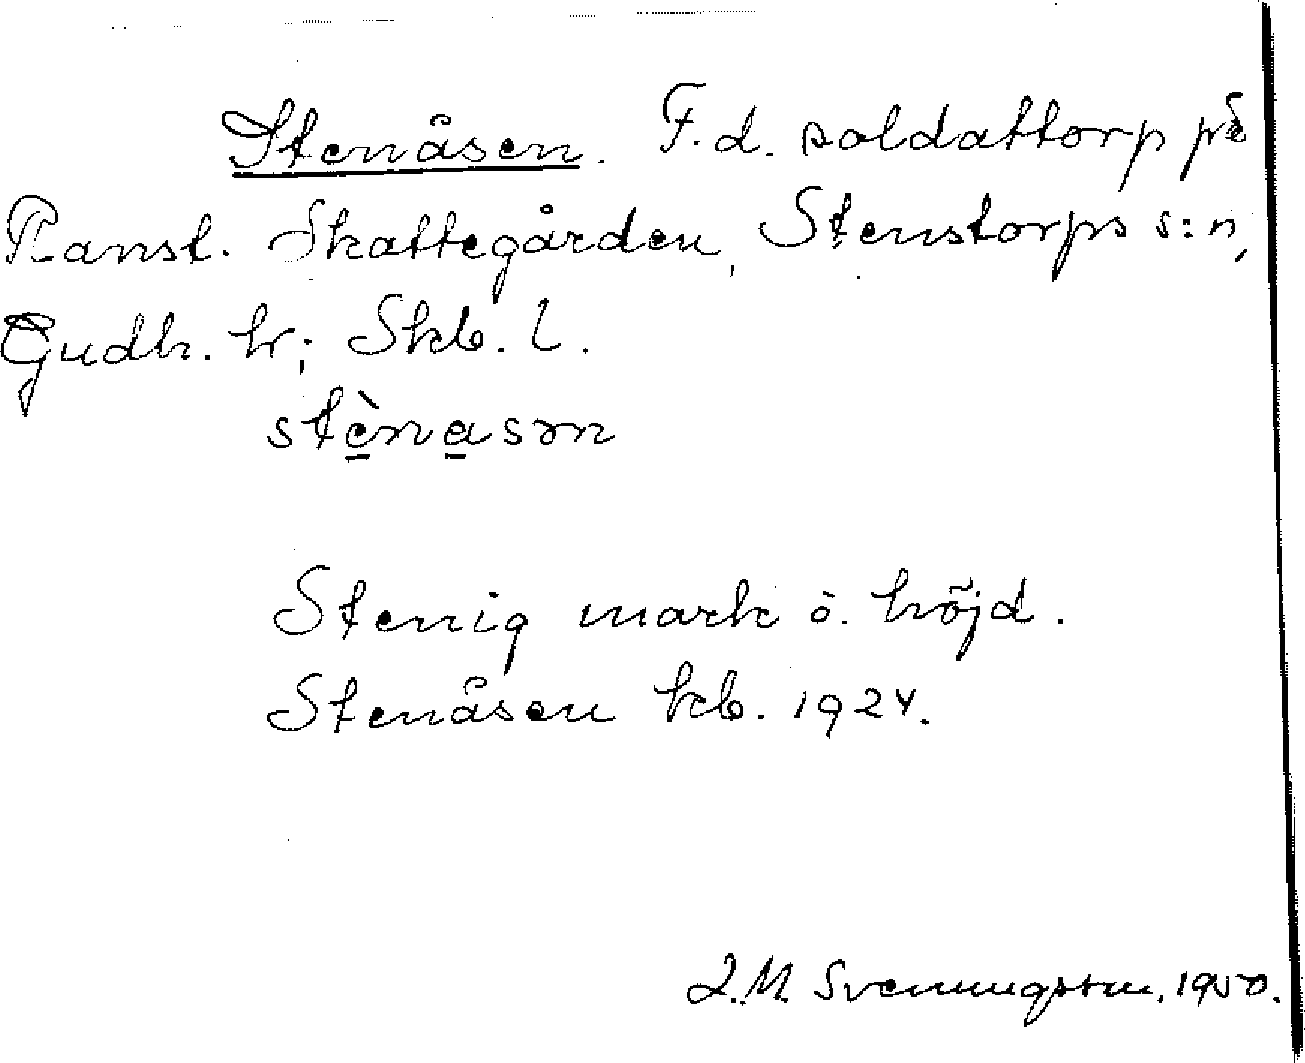 Stenåsen. F.d. soldattorp på
Ranst. Skattegården, Stenstorps s:n,
Gudh. hr; Skb. l.
stènasən
Stenig mark o. höjd.
Stenåsen kb. 1924.
J.M. Svenungsson, 1950.